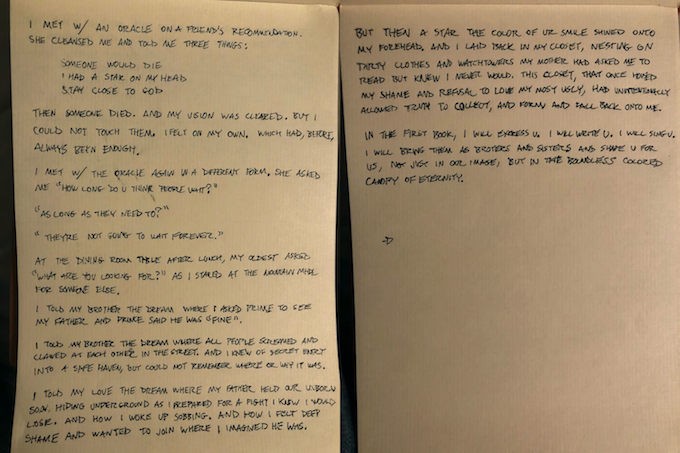 I MET W/ AN ORACLE ON A FRIEND'S RECOMMENDATION.
SHE CLEANSED ME AND TOLD ME THREE THINGS:
SOMEONE WOULD DIE
I HAD A STAR ON MY HEAD
STAY CLOSE TO GOD
THEN SOMEONE DIED. AND MY VISION WAS CLEARED. BUT I
COULD NOT TOUCH THEM. I FELT ON MY OWN. WHICH HAD, BEFORE,
ALWAYS BEEN ENOUGH.
I MET W/ THE ORACLE AGAIN IN A DIFFERENT FORM. SHE ASKED
ME "HOW LONG DO U THINK PEOPLE WAIT?"
"AS LONG AS THEY NEED TO?"
"THEYRE NOT GOING TO WAIT FOREVER."
AT THE DINING ROOM TABLE AFTER LUNCH, MY OLDEST ASKED
"WHAT ARE YOU LOOKING FOR?" AS I STARED AT THE MOUNTAIN
FOR SOMEONE ELSE.
I TOLD MY BROTHER THE DREAM WHERE I ASKED PRIME TO SEE
MY FATHER AND PRIME SAID HE WAS "FINE".
I TOLD MY BROTHER THE DREAM WHERE ALL PEOPLE SCREAMED AND
CLAWED AT EACH OTHER IN THE STREET. AND I KNEW OF SECRET ENTRY
INTO A SAFE HAVEN, BUT COULD NOT REMEMBER WHERE OR WHY IT WAS.
I TOLD MY LOVE THE DREAM WHERE MY FATHER HELD OUR UNBORN
SON. HIDING UNDERGROUND AS I PREPARED FOR A FIGHT I KNEW I WOULD
LOSE. AND HOW I WOKE UP SOBBING. AND HOW I FELT DEEP
SHAME AND WANTED TO JOIN WHERE I IMAGINED HE WAS.
BUT THEN A STAR THE COLOR OF UR SMILE SHINED ONTO
MY FOREHEAD. AND I LAID BACK IN MY CLOSET, NESTING ON
DIRTY CLOTHES AND WATCHTOWERS MY MOTHER HAD ASKED ME TO
READ BUT KNEW I NEVER WOULD. THIS CLOSET, THAT ONCE HOPED
MY SHAME AND REFUSAL TO LOVE MY MOST UGLY, HAD UNINTENTIONALLY
ALLOWED TRUTH TO COLLECT, AND FORM AND FALL BACK ONTO ME.
IN THE FIRST BOOK, I WILL EXPRESS U. I WILL WRITE U. I WILL SING U.
I WILL BRING THEM AS BROTERS AND SISTERS AND SHAPE U FOR
US, NOT JUST IN OUR IMAGE, BUT IN THE BOUNDLESS COLORED
CANOPY OF ETERNITY.
-D